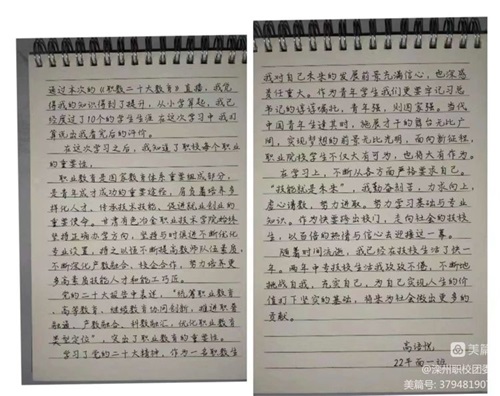 通过本次的《职教二十大教育》直播，我觉
得我的知识得到了提升，从小学算起，我已
经度过了10个的学生生涯在这学习中我打
算说出我看完后的评价。
在这次学习之后，我知道了职校每个职业
的重要性。
职业教育是国家教育体系重要组成部分，
是青年成才成功的重要途径，肩负着培养多
样化人才、传承技术技能、促进就业创业的
重要使命。甘肃有色冶金职业技术学院始终
坚持正确办学方向，坚持与时俱进不断优化
专业设置，持之以恒不断提高教师队伍素质，
不断深化产教融合、校企合作，努力培养更
多高素质技能人才和能工巧匠。
党的二十大报告中喜述，“统筹职业教育
、高等教育、继续教育协同创新，推进职普
融通、产教融合、科教融汇，优化职业教育
类型定位”，突出了职业教育的重要性。
学习了党的二十大精神，作为一名职教生
我对自己未来的发展前景充满信心，也深感
责任重大。作为青年学生我们更要牢记习总
书记的谆谆嘱托，青年强，则国家强。当代
中国青年生逢其时，施展才干的舞台无比广
阔，实现梦想的前景无比光明，面向新征程，
职业院校学生不仅大有可为，也将大有作为。
在学习上，不断从各方面严格要求自己。
“技能就是未来”，我勤奋刻苦，力求向上，
虚心请教，努力进取。努力学习基础与专业
知识。作为快要跨出校门，走向社会的技校
生，以百倍的热情与信心去迎接这一幕。
随着时间流逝，我已经在技校生活了快一
年。两年中专技校生活我孜孜不倦，不断地
挑战自我，充实自己，为自己实现人生的价
值打下坚实的基础，将来为社会做出更多的
贡献。
高语悦
22平面一班
美篇
@深州职校团委
美篇号: 37948190